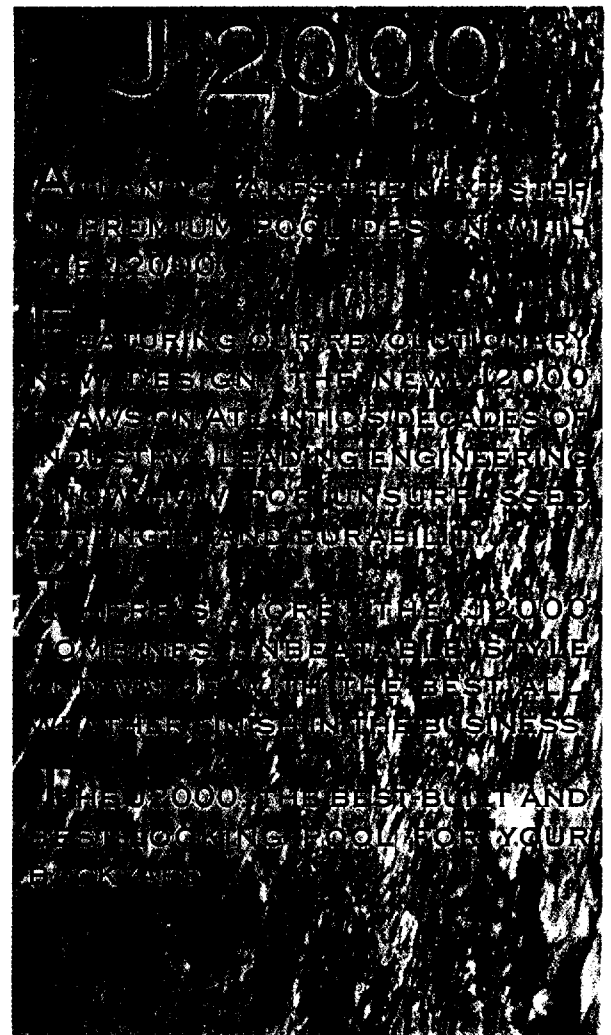 J 2000
ATLANTIC TAKES THE NEXT STEP
IN PREMIUM POOL DESIGN WITH
THE J2000.
FEATURING OUR REVOLUTIONARY
NEW DESIGN, THE NEW J2000
DRAWS ON ATLANTIC'S DECADES OF
INDUSTRY-LEADING ENGINEERING
KNOW-HOW FOR UNSURPASSED
STRENGTH AND DURABILITY.
THERE'S MORE! THE J2000
COMBINES UNBEATABLE STYLE
AND WITH THE BEST ALL-
WEATHER FINISH IN THE BUSINESS.
THE J2000. THE BEST-BUILT AND
BEST-LOOKING POOL FOR YOUR
BACKYARD.